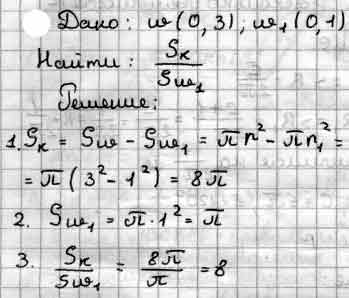 Дано: w(0,3); w₁(0,1)
Найти: Sк/Sw₁
Решение:
1. Sк = Sw - Sw₁ = πr² - πr₁² =
= π(3² - 1²) = 8π
2. Sw₁ = π·1² = π
3. Sк/Sw₁ = 8π/π = 8